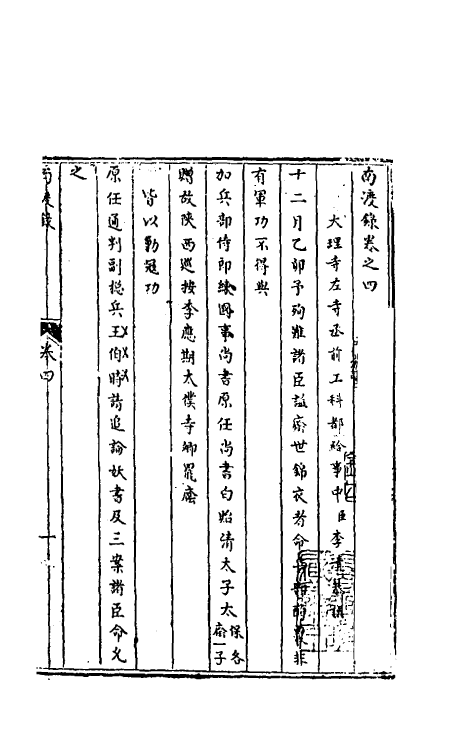 南渡錄卷之四
大理寺左寺丞前工科都給事中臣李清
十二月乙卯予殉難諸臣諡廕世錦衣者命
非有軍功不得與
加兵部侍郎練國事尚書原任尚書白貽清太子太保各廕一子
贈故陝西巡按李應期太僕寺卿罷廕
皆以勦寇功
原任通判副總兵王時請追論妖書及三案諸臣命允
之
南渡錄
卷四
一